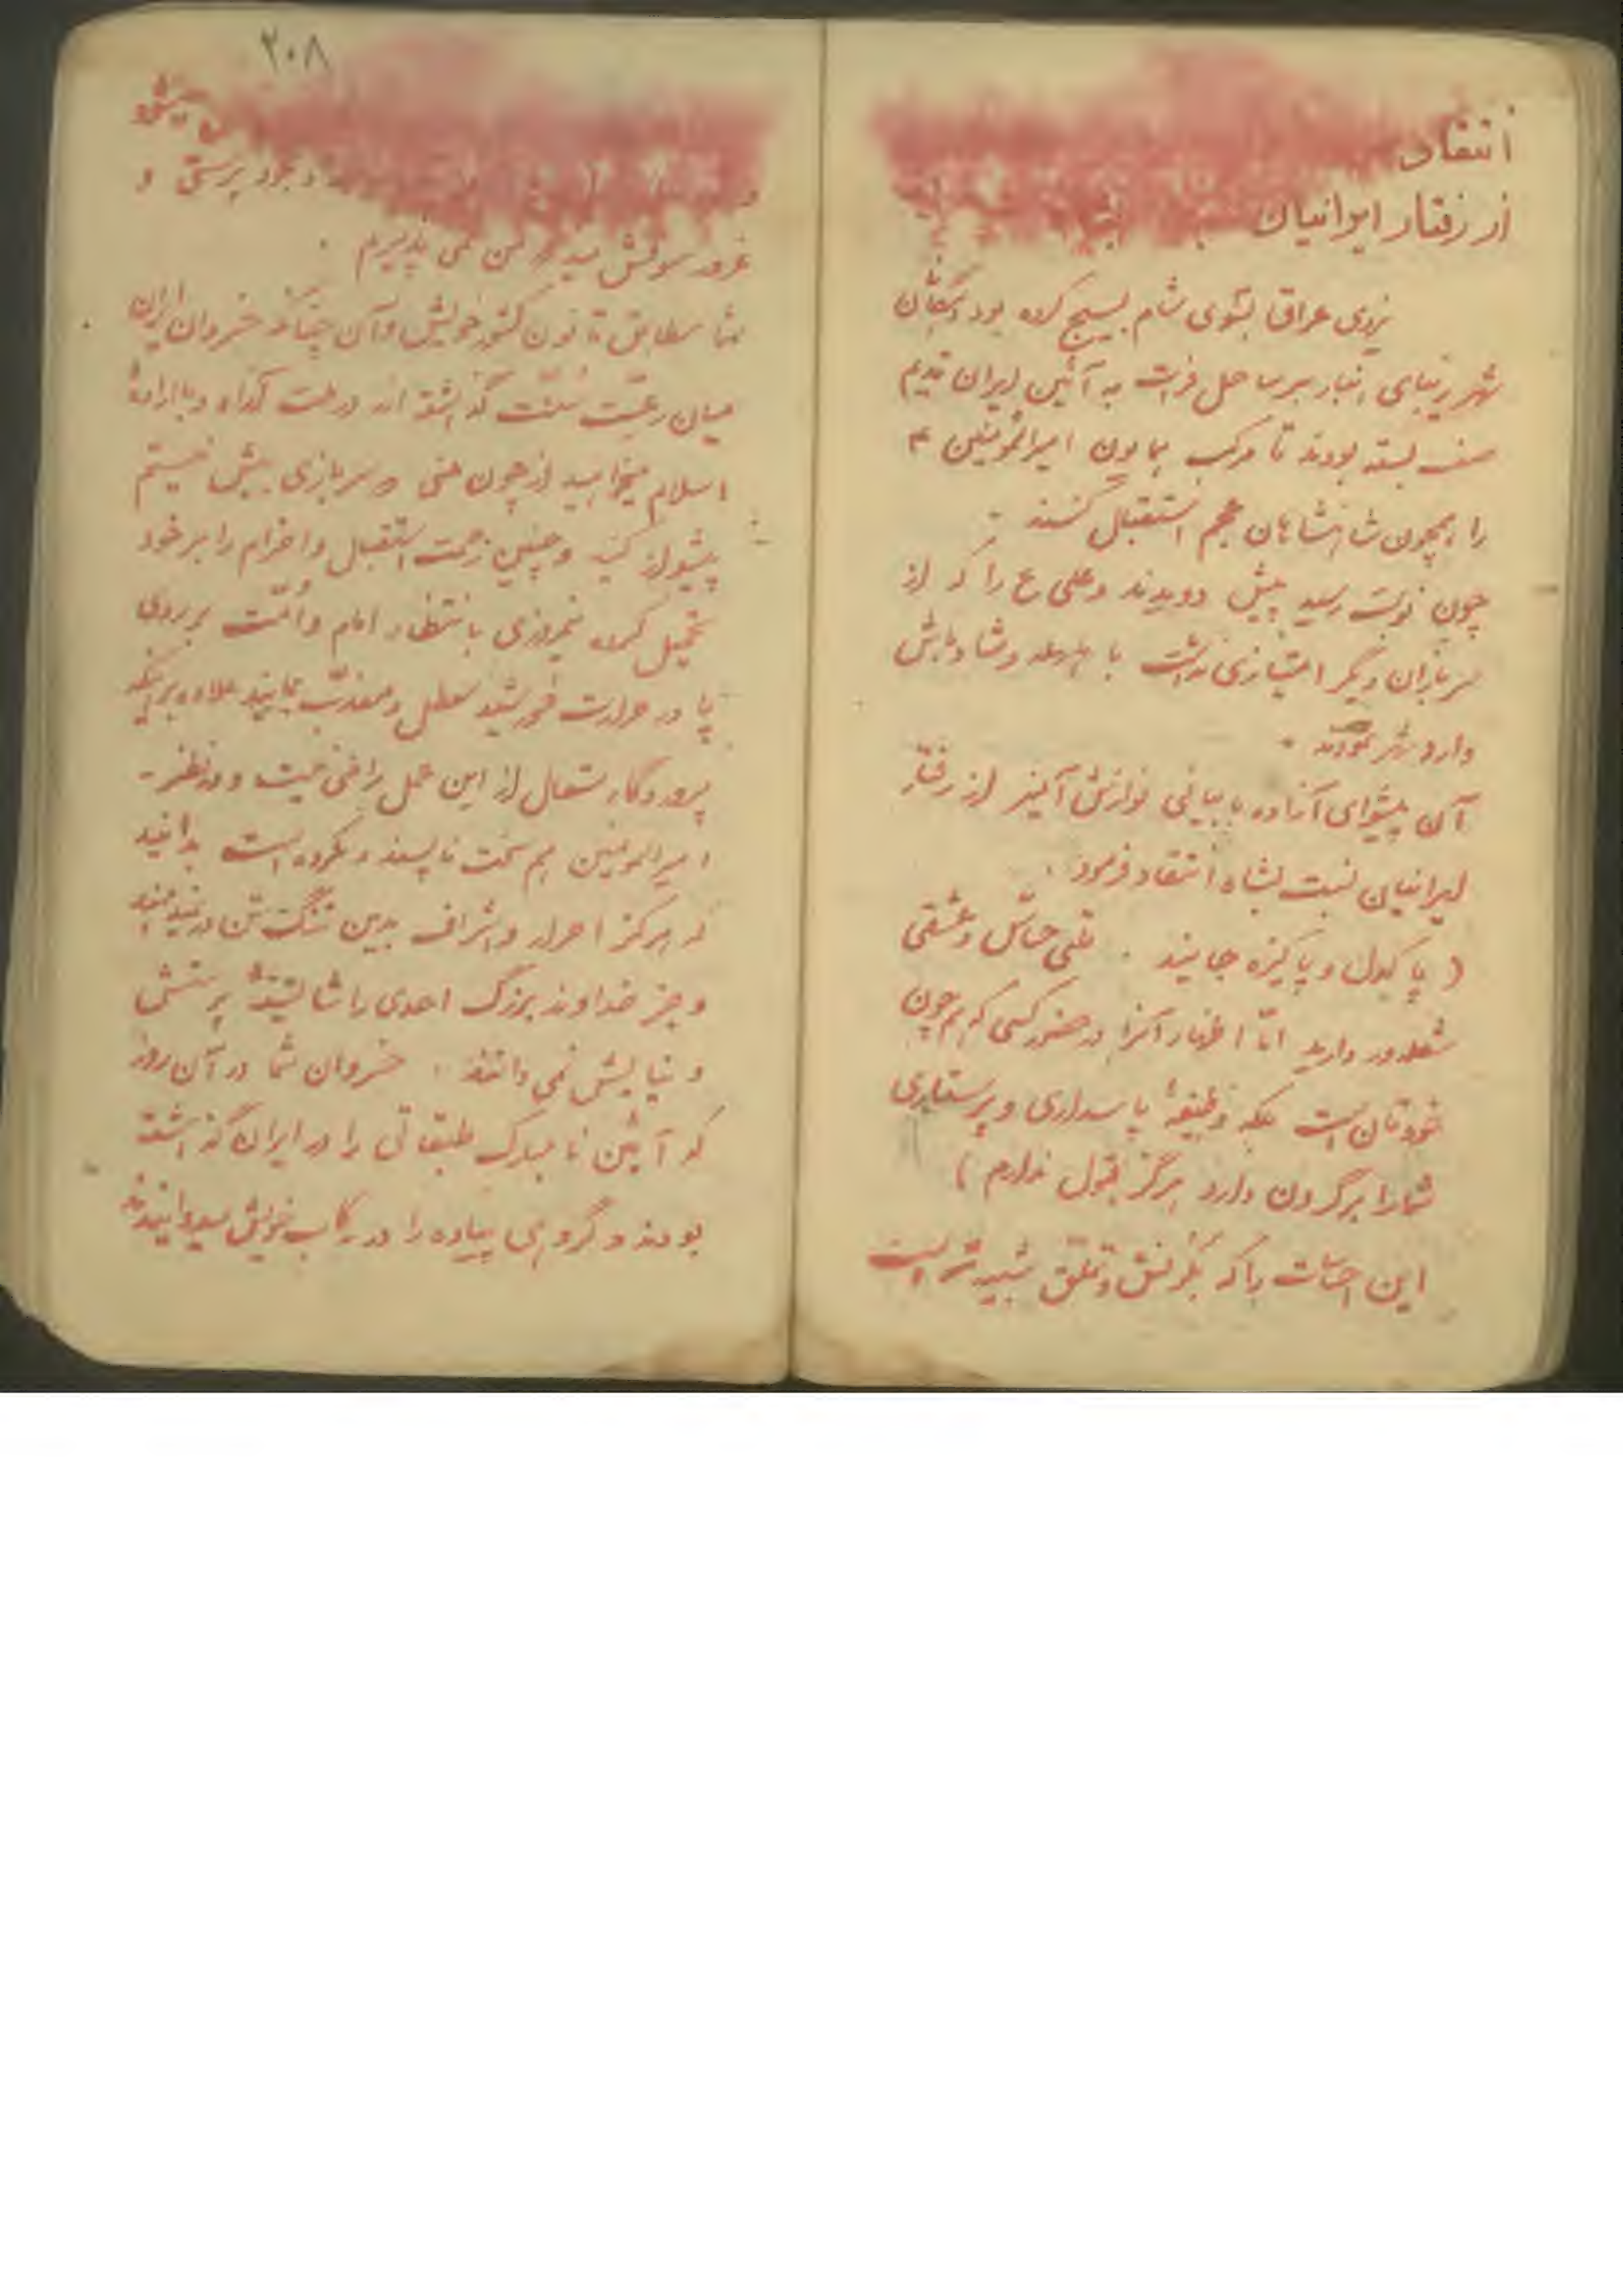 انتقاد
از رفتار ایرانیان
نیروی عراق بسوی شام بسیج کرده بود
شهر زیبای انبار بر ساحل فرات به آئین ایران قدیم
صف بسته بودند تا مرکب همایون امیرالمؤمنین ۴
را همچون شاهنشاهان عجم استقبال کنند
چون نوبت رسید پیش دویدند و علی ع را که از
سربازان دیگر امتیازی نداشت با هلهله و شادباش
وارد شهر نمودند
آن پیشوای آزاده با بیانی نوازش آمیز از رفتار
ایرانیان نسبت بشاه انتقاد فرمود
( پاکدل و پاکیزه جانید . قلبی حساس و عشقی
شعله‌ور دارید امّا اظهار آنرا در حضور کسی که هم چون
خودتان است بلکه وظیفهٔ پاسداری و پرستاری
شما را برگردن دارد هرگز قبول ندارم )
این احساسات را که بکرنش و تملق شبیه‌تر است
۲۰۸
خود پرستی و
غرور سوقش میدهد من نمی پذیرم .
شما مطابق قانون کشور خویش و آن چنانکه خسروان ایران
میان رعیت سنّت گذاشته‌اند در تحت
اسلام میخواهید از چون منی که سربازی بیش نیستم
پیشواز کنید و چنین زحمت استقبال و احترام را بر خود
تحمیل کرده نیمروزی بانتظار امام و امّت بر روی
پا در حرارت خورشید معطل و معذّب بمانید علاوه بر اینکه
پروردگار متعال از این عمل راضی نیست و در نظر -
امیرالمومنین هم سخت ناپسند و مکروه است بدانید
که هرگز احرار و اشراف بدین ننگ تن در نمیدهند
و جز خداوند بزرگ احدی را شایستهٔ پرستش
و نیایش نمی دانند . خسروان شما در آن روز
که آئین نا مبارک طبقاتی را در ایران گذاشته
بودند و گروهی پیاده را در رکاب خویش میدوانیدند